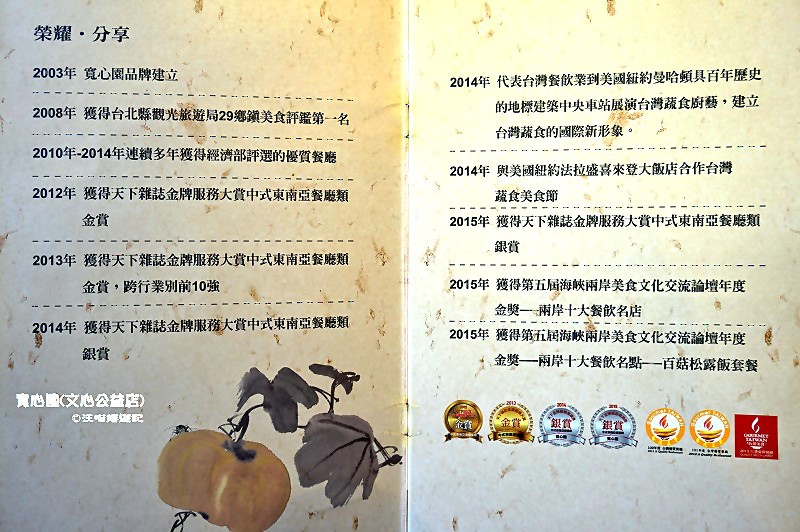 榮耀・分享
2003年 寬心園品牌建立
2008年 獲得台北縣觀光旅遊局29鄉鎮美食評鑑第一名
2010年-2014年連續多年獲得經濟部評選的優質餐廳
2012年 獲得天下雜誌金牌服務大賞中式東南亞餐廳類
金賞
2013年 獲得天下雜誌金牌服務大賞中式東南亞餐廳類
金賞，跨行業別前10強
2014年 獲得天下雜誌金牌服務大賞中式東南亞餐廳類
銀賞
寬心園(文心公益店)
2014年 代表台灣餐飲業到美國紐約曼哈頓具百年歷史
的地標建築中央車站展演台灣蔬食廚藝，建立
台灣蔬食的國際新形象。
2014年 與美國紐約法拉盛喜來登大飯店合作台灣
蔬食美食節
2015年 獲得天下雜誌金牌服務大賞中式東南亞餐廳類
銀賞
2015年 獲得第五屆海峽兩岸美食文化交流論壇年度
金獎──兩岸十大餐飲名店
2015年 獲得第五屆海峽兩岸美食文化交流論壇年度
金獎──兩岸十大餐飲名點──百菇松露飯套餐
金賞
2013
金賞
2014
銀賞
2015
銀賞
GOURMET
TAIWAN